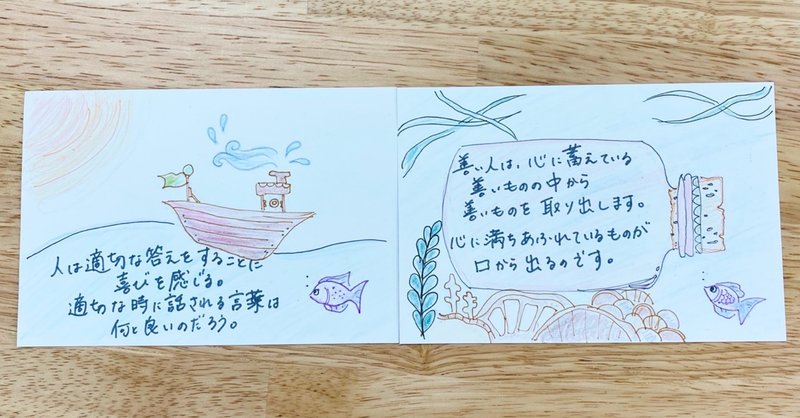 人は適切な答えをすることに
喜びを感じる。
適切な時に話される言葉は
何と良いのだろう。
善い人は、心に蓄えている
善いものの中から
善いものを取り出します。
心に満ちあふれているものが
口から出るのです。